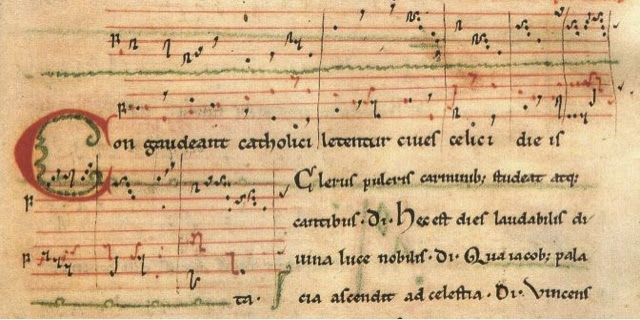 Congaudeant catholici letentur ciues celici die is
Clerus pulcris carminib; studeat atq;
cantibus · Di · Hec est dies laudabilis di
uina luce nobilis · Di · Qua iacob; pala
ta · cia ascendit ad celestia · Di · Vincens